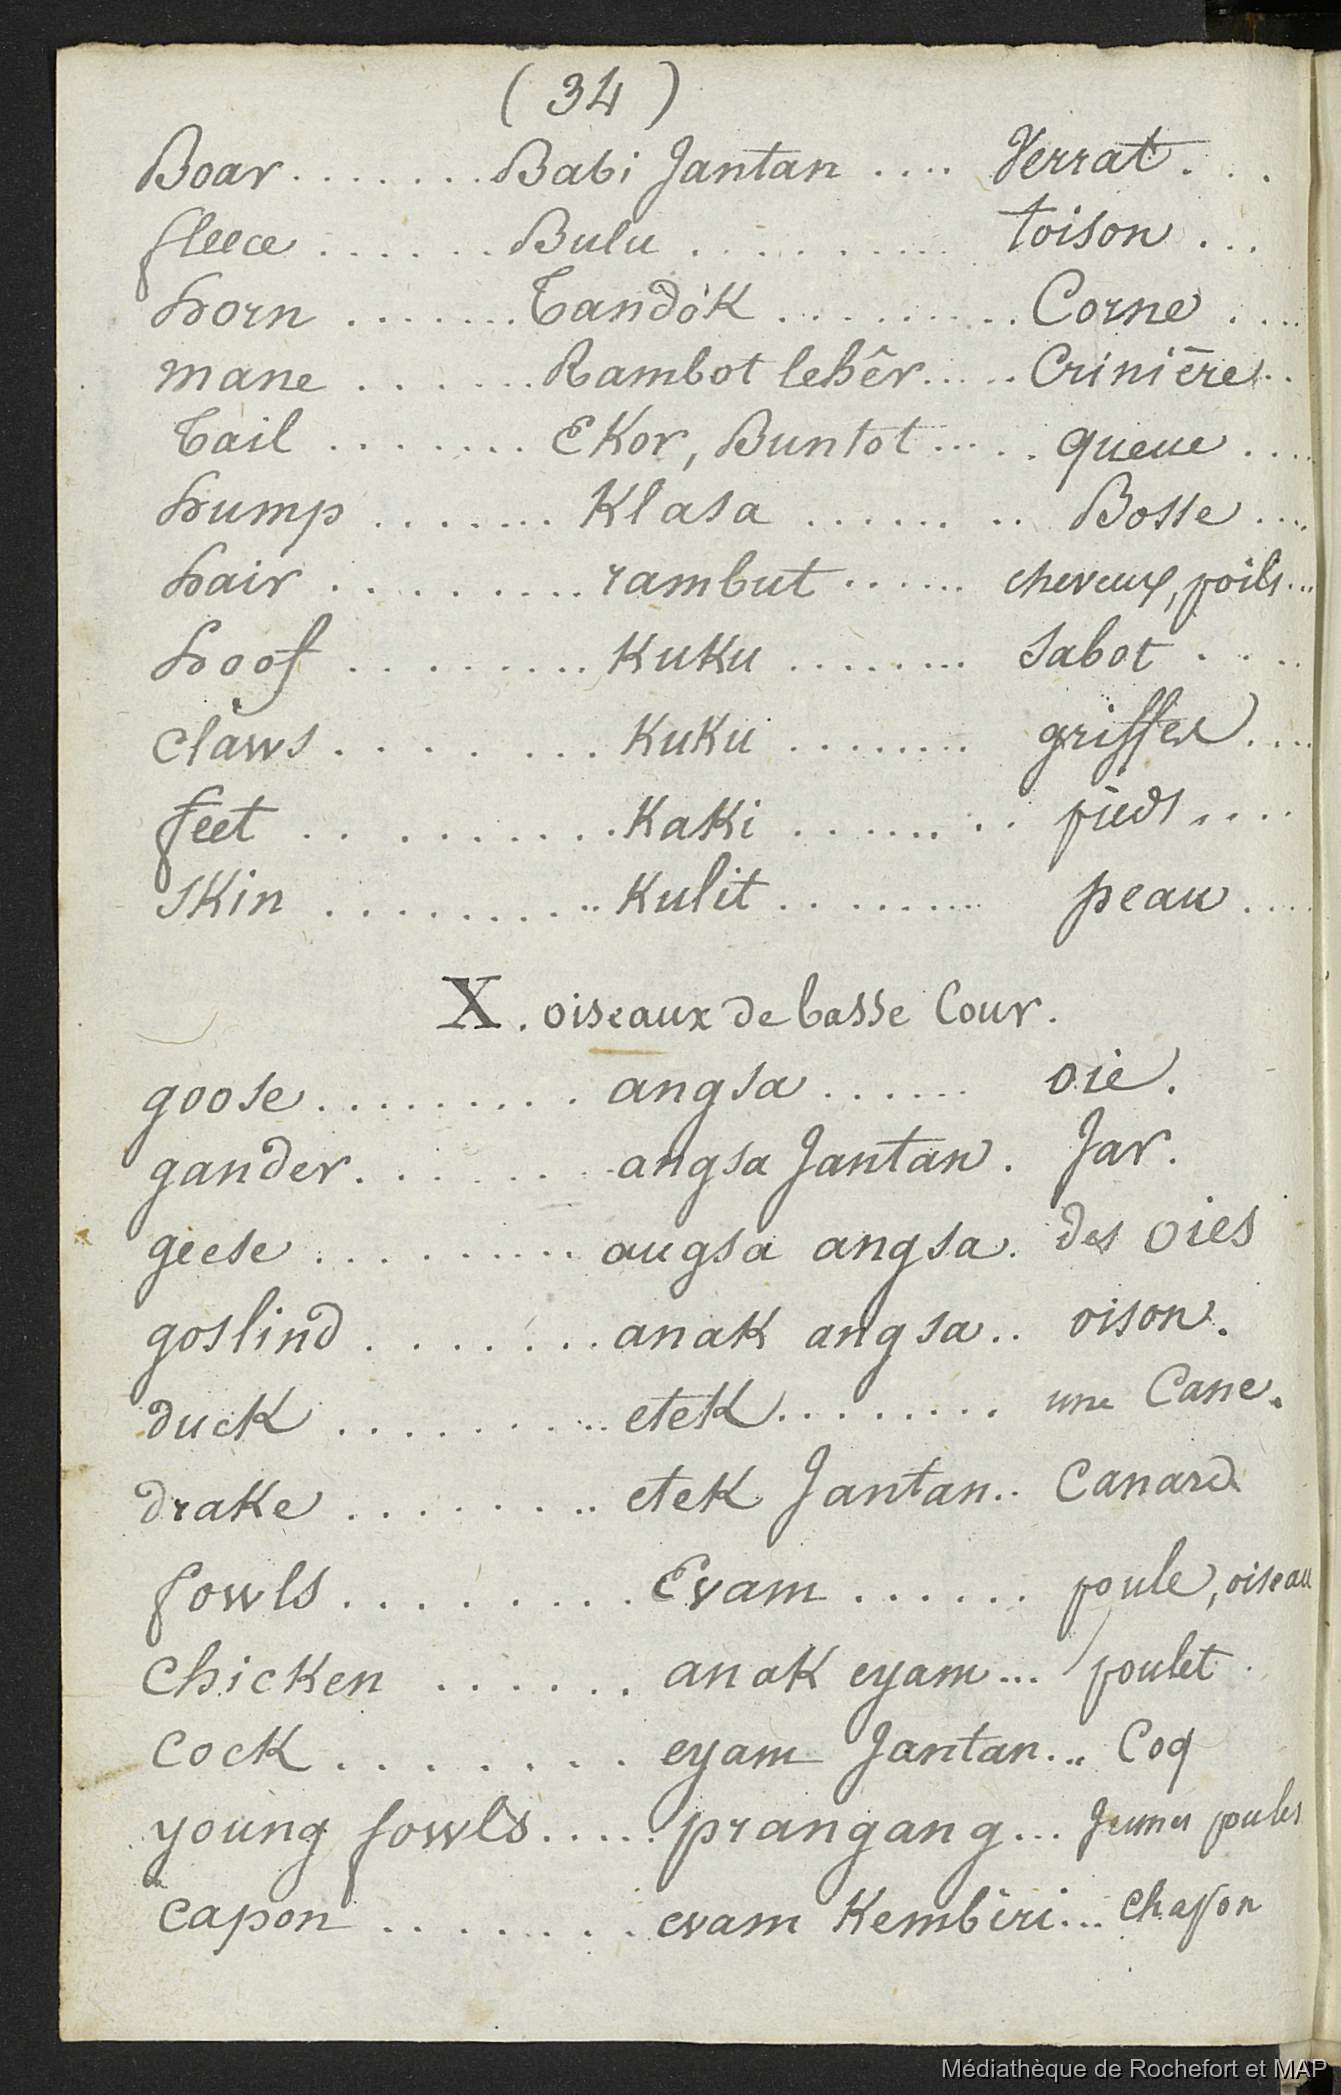 ( 34 )
Boar ....... Babi Jantan .... Verrat . . .
fleece ...... Bulu ......... toison ...
horn ....... Tandòk ......... Corne ....
mane ...... Rambot lehêr ..... Crinière ..
Tail ........ EKor, Buntot ..... queue ....
hump ....... Klasa ........ Bosse ....
hair ......... rambut ...... cheveux, poils ...
hoof ......... KuKu ....... sabot ....
claws ....... KuKu ........ griffes ....
feet ......... KaKi ........ pieds ....
sKin .......... Kulit ........ peau ....
X. oiseaux de basse Cour.
goose ......... angsa ...... oie.
gander ....... angsa Jantan. Jar.
geese ......... augsa angsa. des oies
goslind ....... anaK angsa.. oison.
ducK ......... eteK ........ une Cane.
draKe ........ eteK Jantan.. Canard
fowls ........ Evam ...... poule, oiseau
chicKen ...... anaK eyam ... poulet
cocK ....... eyam Jantan... Coq
young fowls ..... prangang ... Jeunes poules
capon ........ evam Kembiri... chapon
Médiathèque de Rochefort et MAP